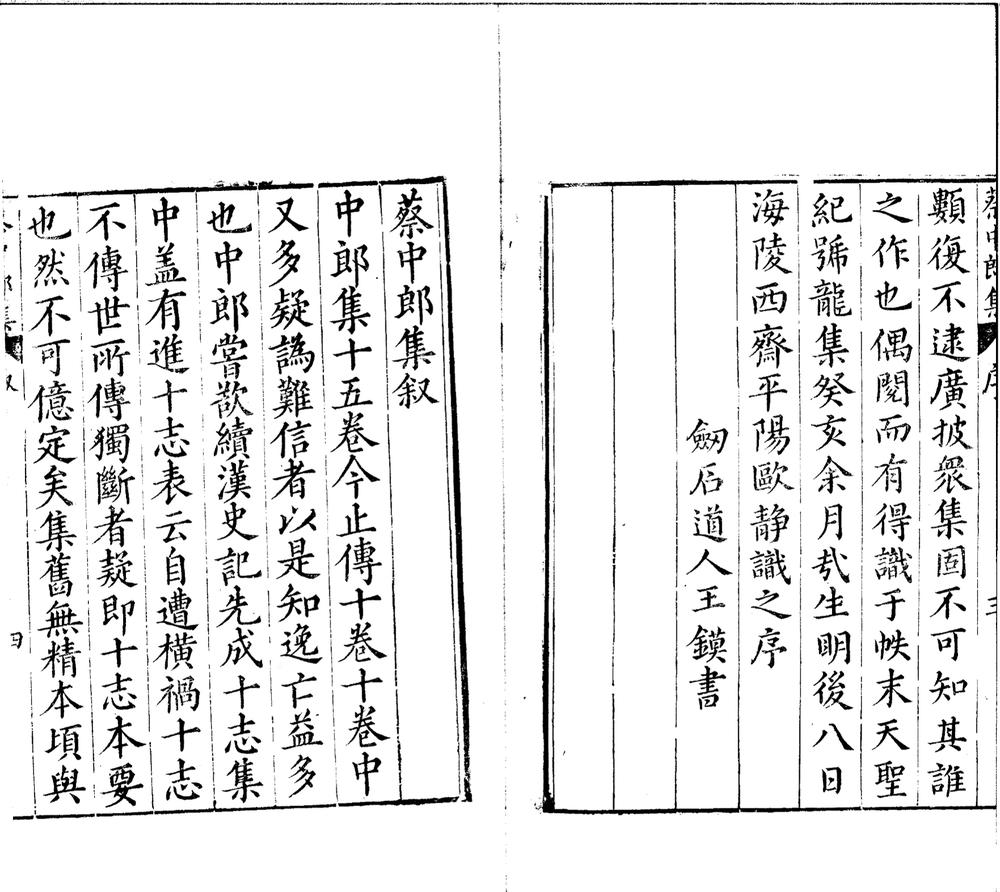 顥復不逮廣披衆集固不可知其誰
之作也偶閱而有得識于帙末天聖
紀號龍集癸亥余月哉生明後八日
海陵西齋平陽歐静識之序
劒石道人王鏌書
蔡中郎集
序
三
蔡中郎集叙
中郎集十五卷今止傳十卷十卷中
又多疑譌難信者以是知逸亡益多
也中郎嘗欲續漢史記先成十志集
中盖有進十志表云自遭横禍十志
不傳世所傳獨斷者疑即十志本要
也然不可億定矣集舊無精本頃與
叙
四